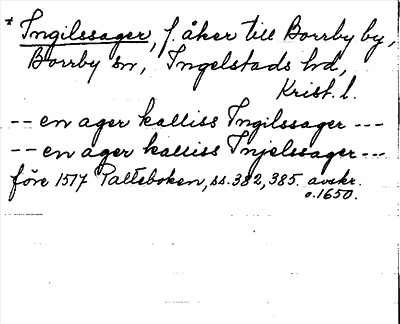 * Ingilssager, f. åker till Borrby by,
Borrby sn, Ingelstads hd,
Krist. l.
-- en ager kalliss Ingilssager ---
-- en ager kalliss Injelssager ---
före 1517 Palteboken, ss. 382, 385. avskr.
o. 1650.